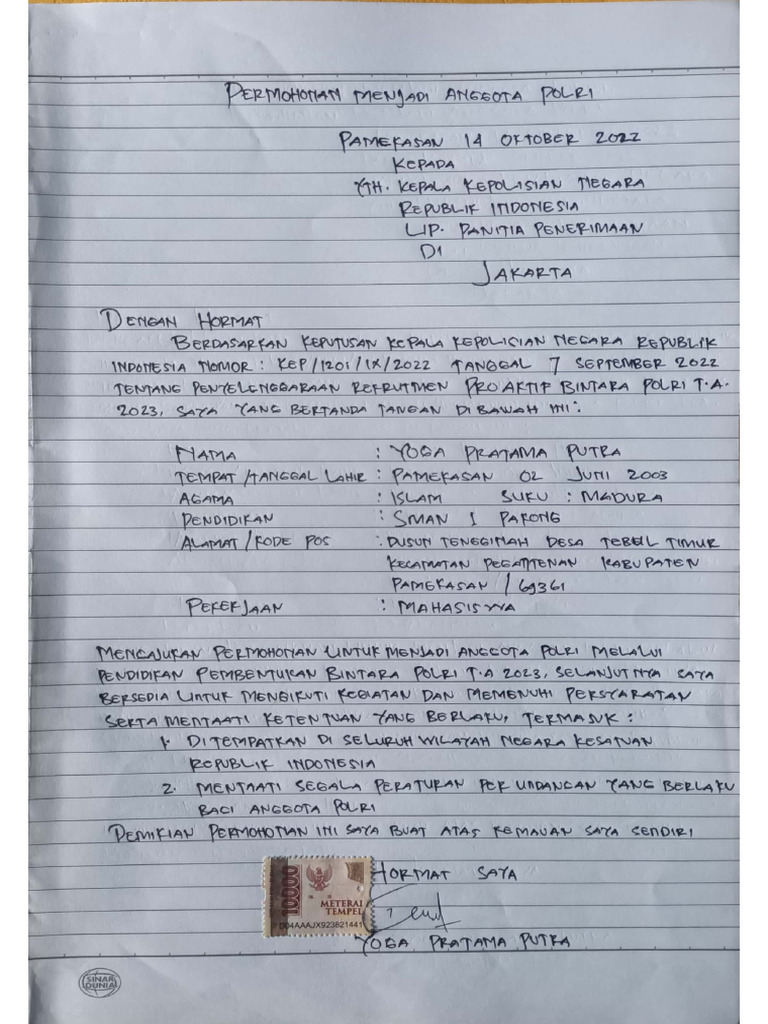 PERMOHONAN MENJADI ANGGOTA POLRI
PAMEKASAN 14 OKTOBER 2022
KEPADA
YTH. KEPALA KEPOLISIAN NEGARA
REPUBLIK INDONESIA
UP. PANITIA PENERIMAAN
DI
JAKARTA
DENGAN HORMAT
BERDASARKAN KEPUTUSAN KEPALA KEPOLISIAN NEGARA REPUBLIK
INDONESIA NOMOR : KEP/1201/IX/2022 TANGGAL 7 SEPTEMBER 2022
TENTANG PENYELENGGARAAN REKRUTMEN PROAKTIF BINTARA POLRI T.A.
2023, SAYA YANG BERTANDA TANGAN DI BAWAH INI :
NAMA : YOGA PRATAMA PUTRA
TEMPAT/TANGGAL LAHIR : PAMEKASAN 02 JUNI 2003
AGAMA : ISLAM SUKU : MADURA
PENDIDIKAN : SMAN 1 PAKONG
ALAMAT/KODE POS : DUSUN TENGGINAH DESA TEBUL TIMUR
KECAMATAN PEGANTENAN KABUPATEN
PAMEKASAN / 69361
PEKERJAAN : MAHASISWA
MENGAJUKAN PERMOHONAN UNTUK MENJADI ANGGOTA POLRI MELALUI
PENDIDIKAN PEMBENTUKAN BINTARA POLRI T.A 2023, SELANJUTNYA SAYA
BERSEDIA UNTUK MENGIKUTI KEGIATAN DAN MEMENUHI PERSYARATAN
SERTA MENTAATI KETENTUAN YANG BERLAKU, TERMASUK :
1. DI TEMPATKAN DI SELURUH WILAYAH NEGARA KESATUAN
REPUBLIK INDONESIA
2. MENTAATI SEGALA PERATURAN PER UNDANGAN YANG BERLAKU
BAGI ANGGOTA POLRI
DEMIKIAN PERMOHONAN INI SAYA BUAT ATAS KEMAUAN SAYA SENDIRI
HORMAT SAYA
10000
METERAI
TEMPEL
D04AAAJX923821441
YOGA PRATAMA PUTRA
SINAR
DUNIA